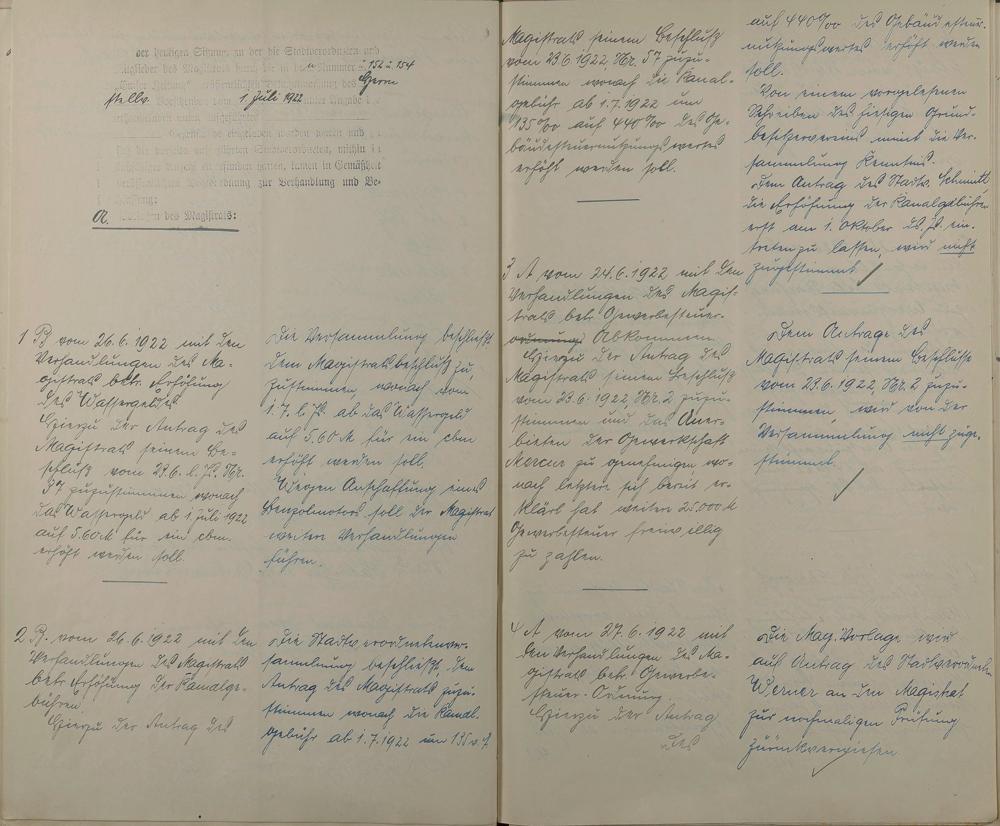 der heutigen Sitzung zu der die Stadtverordneten und
Mitglieder des Magistrats durch die in den Nummer u. 152 u. 154
Herrn
stellv. 1 Juli 1922
eingeladen worden waren und
Stadtverordneten, mithin
kamen in Gemäßheit
zur Verhandlung und Be-
A.
des Magistrats:
1 B vom 26.6.1922 mit den
Verhandlungen des Ma-
gistrats betr. Erhöhung
des Wassergeldes
Hierzu der Antrag des
Magistrats seinem Be-
schluß vom 23.6. l. Js. Nr.
57 zuzustimmen wonach
das Wassergeld ab 1 Juli 1922
auf 5.60 M für ein cbm.
erhöht werden soll.
Die Versammlung beschließt
dem Magistratsbeschluß zu-
zustimmen, wonach vom
1.7. l. Js. ab das Wassergeld
auf 5.60 M für ein cbm
erhöht werden soll.
Wegen Anschaffung eines
Benzolmotors soll der Magistrat
weitere Verhandlungen
führen.
2 B. vom 26.6.1922 mit den
Verhandlungen des Magistrats
betr. Erhöhung der Kanalge-
bühren.
Hierzu der Antrag des
Die Stadtverordnetenver-
sammlung beschließt, dem
Antrag des Magistrats zuzu-
stimmen wonach die Kanal-
gebühr ab 1.7.1922 um 135 v. H
Magistrats seinem Beschluß
vom 23.6.1922 Nr. 57 zuzu-
stimmen wonach die Kanal-
gebühr ab 1.7.1922 um
135% auf 440% des Ge-
bäudesteuernutzungswertes
erhöht werden soll.
auf 440% des Gebäudesteuer-
nutzungswertes erhöht werden
soll.
Von einem vorgelesenen
Schreiben des hiesigen Grund-
besitzervereins nimmt die Ver-
sammlung Kenntnis.
Dem Antrag des Stadtv. Schmitt,
die Erhöhung der Kanalgebühren
erst am 1. Oktober ds. Js. ein-
treten zu lassen, wird nicht
zugestimmt
3 A vom 24.6.1922 mit den
Verhandlungen des Magis-
trats betr. Gewerbesteuer-
ordnung Abkommen
Hierzu der Antrag des
Magistrats seinem Beschluß
vom 23.6.1922, Nr. 2 zuzu-
stimmen und das Aner-
bieten der Gewerkschaft
Mercur zu genehmigen wo-
nach letztere sich bereit er-
klärt hat weitere 25.000 M
Gewerbesteuer freiwillig
zu zahlen.
Dem Antrage des
Magistrats seinem Beschlusse
vom 23.6.1922, Nr. 2 zuzu-
stimmen, wird von der
Versammlung nicht zuge-
stimmt.
4 A vom 27.6.1922 mit
den Verhandlungen des Ma-
gistrats betr. Gewerbe-
steuer-Ordnung.
Hierzu der Antrag
des
Die Mag. Vorlage wird
auf Antrag des Stadtverordneten
Werner an den Magistrat
zur nochmaligen Prüfung
zurückverwiesen